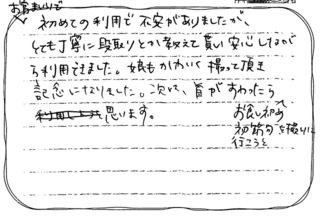 お宮まいりで
初めての利用で不安がありましたが、
とても丁寧に段取りとか教えて貰い安心しなが
ら利用できました。娘もかわいく撮って頂き
記念になりました。次は、首がすわったら
お食い初めへ
初節句を撮りに
行こうと
思います。